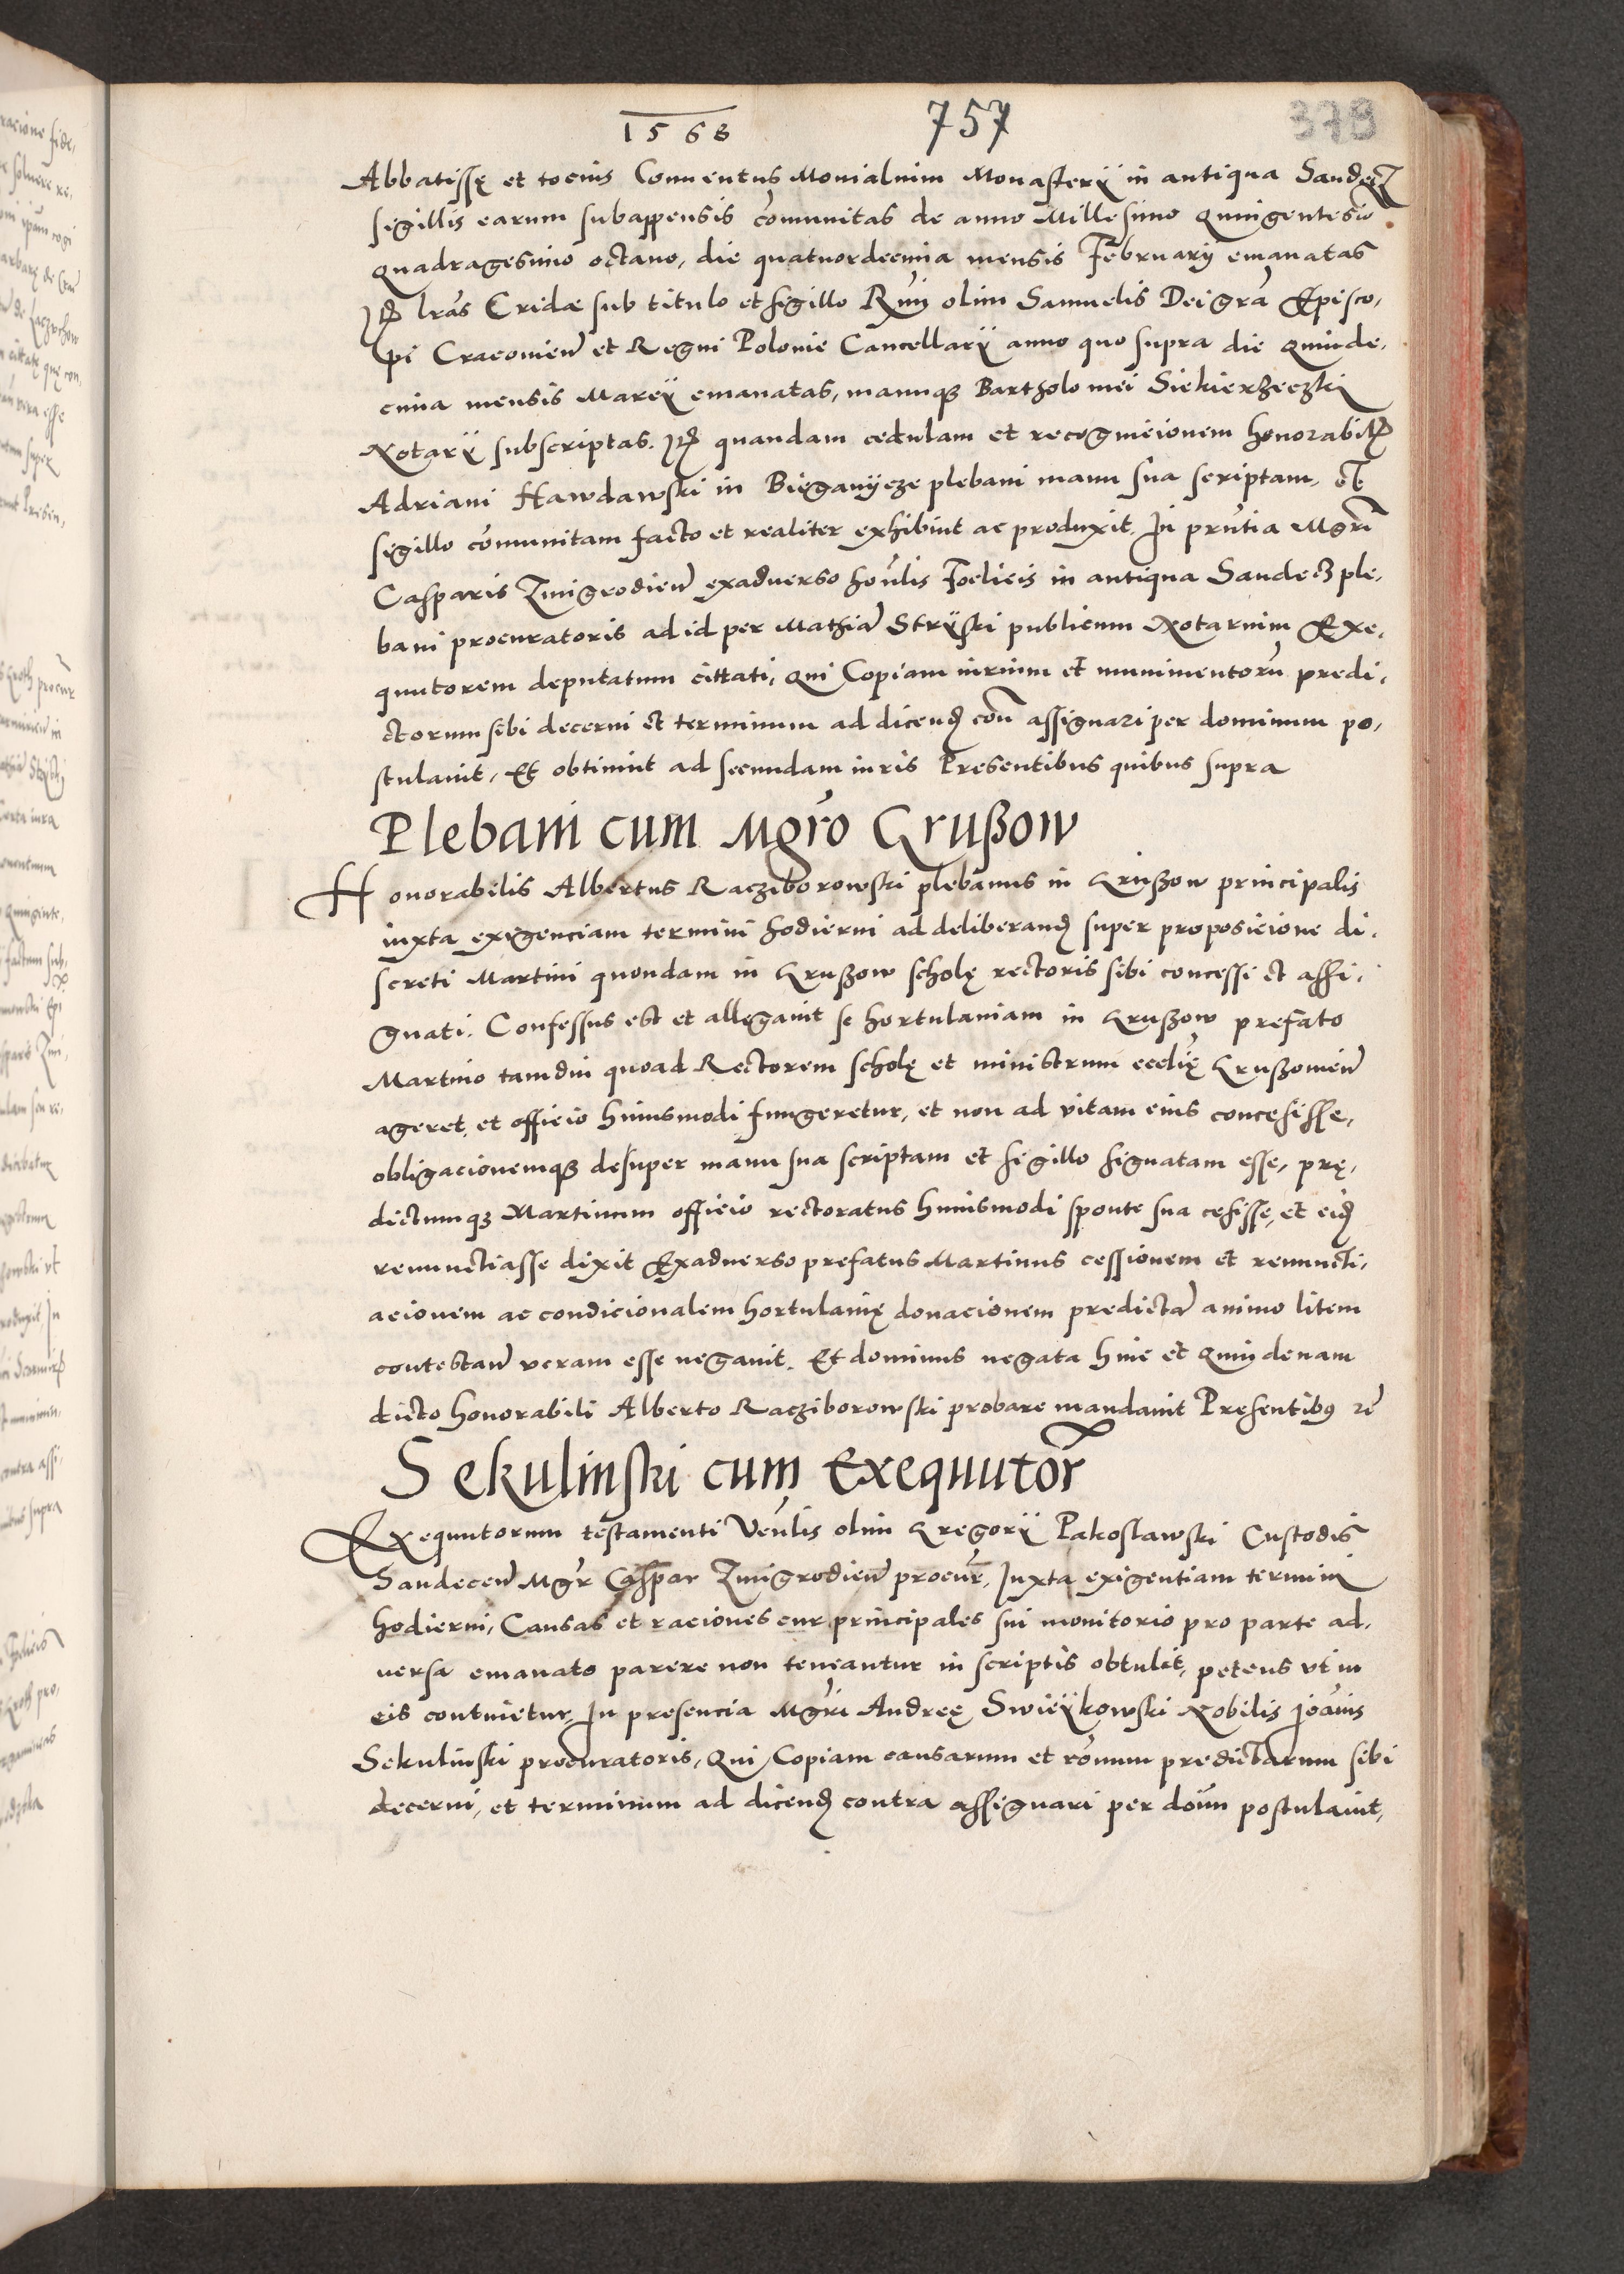 1568 757 379
Abbatissę et tocius Conuentus Monialium Monasterÿ in antiqua Sandecz
sigillis earum subappensis co̅munitas de anno Millesimo Quingentesi̅o
Quadragesimo octauo, die quatuordecima mensis Februarÿ emanatas
Itꝫ lr̅as Cridae sub titulo et sigillo R̅mi olim Samuelis Dei gr̅a Episco,
pi Cracouien̅ et Regni Polonie Cancellarÿ anno quo supra die Quinde,
cima mensis Marcÿ emanatas, manuqꝫ Bartholomei Siekierzeczki
Notarÿ subscriptas. Itꝫ quandam cedulam et recognicionem honorabilꝫ
Adriani Hawdawski in Bieganÿcze plebani manu sua scriptam, et
sigillo co̅munitam facto et realiter exhibuit ac produxit. In pn̅tia Mgr̅i
Casparis Zmigrodien̅ exaduerso hon̅lis Foelicis in antiqua Sandecz ple,
bani procuratoris ad id per Mathia̅ Strÿski publicum Notarium Exe,
quutorem deputatum cittati, Qui Copiam iurium et munimentoru̅ predi,
ctorum sibi decerni et terminum ad dicendꝫ con̅ assignari per dominum po,
stulauit, Et obtinuit ad secundam iuris Presentibus quibus supra
Plebani cum Mgr̅o Grußow
Honorabilis Albertus Racziborowski plebanus in Grußow principalis
iuxta exigenciam termini hodierni ad deliberandꝫ super proposicione di,
screti Martini quondam in Grußow scholę rectoris sibi concessi et assi,
gnati. Confessus est et allegauit se hortulaniam in Grußow prefato
Martino tamdiu quoad Rectorem scholę et ministrum eccl̅ię Grußouien̅
ageret, et officio huiusmodi fungeretur, et non ad vitam eius concesisse,
obligacionemqꝫ desuper manu sua scriptam et sigillo signatam esse, prę,
dictumqꝫ Martinum officio rectoratus huiusmodi sponte sua cesisse, et eidꝫ
renunctiasse dixit Exaduerso prefatus Martinus cessionem et renuncti,
acionem ac condicionalem hortulanię donacionem predicta̅ animo litem
contestan̅ veram esse negauit. Et dominus negata hinc et Quindenam
dicto honorabili Alberto Racziborowski probare mandauit Presentibꝰ re̅
Sekulinski cum Exequutor̅
Exequutorum testamenti Ven̅lis olim Gregorÿ Pakoslawski Custodis
Sandecen̅ Mgr̅ Caspar Zmigrodien̅ procur̅, Iuxta exigentiam termini
hodierni, Causas et raciones cur principales sui monitorio pro parte ad,
uersa emanato parere non teneantur in scriptis obtulit, petens vt in
eis contuietur, In presencia Mgr̅i Andreę Swieÿkowski Nobilis Joan̅is
Sekulinski procuratoris, Qui Copiam causarum et ro̅num predictarum sibi
decerni, et terminum ad dicendꝫ contra assignari per do̅um postulauit,